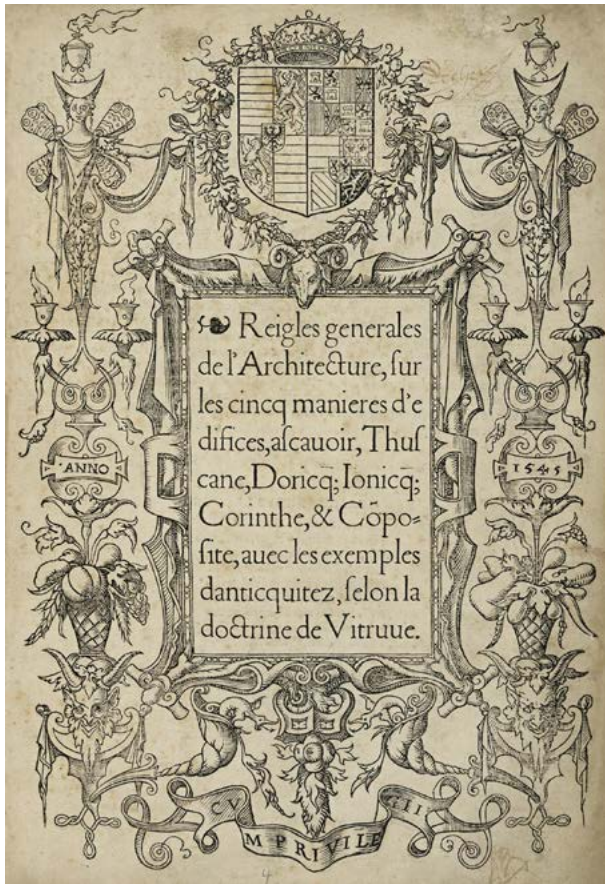 Reigles generales
de l'Architecture, ſur
les cincq manieres d'e
difices, aſcauoir, Thuſ
cane, Doricq̄; Ionicq̄;
Corinthe, & Cōpo=
ſite, auec les exemples
danticquitez, ſelon la
doctrine de Vitruue.
ANNO 1545
CV M PRIVILE GII